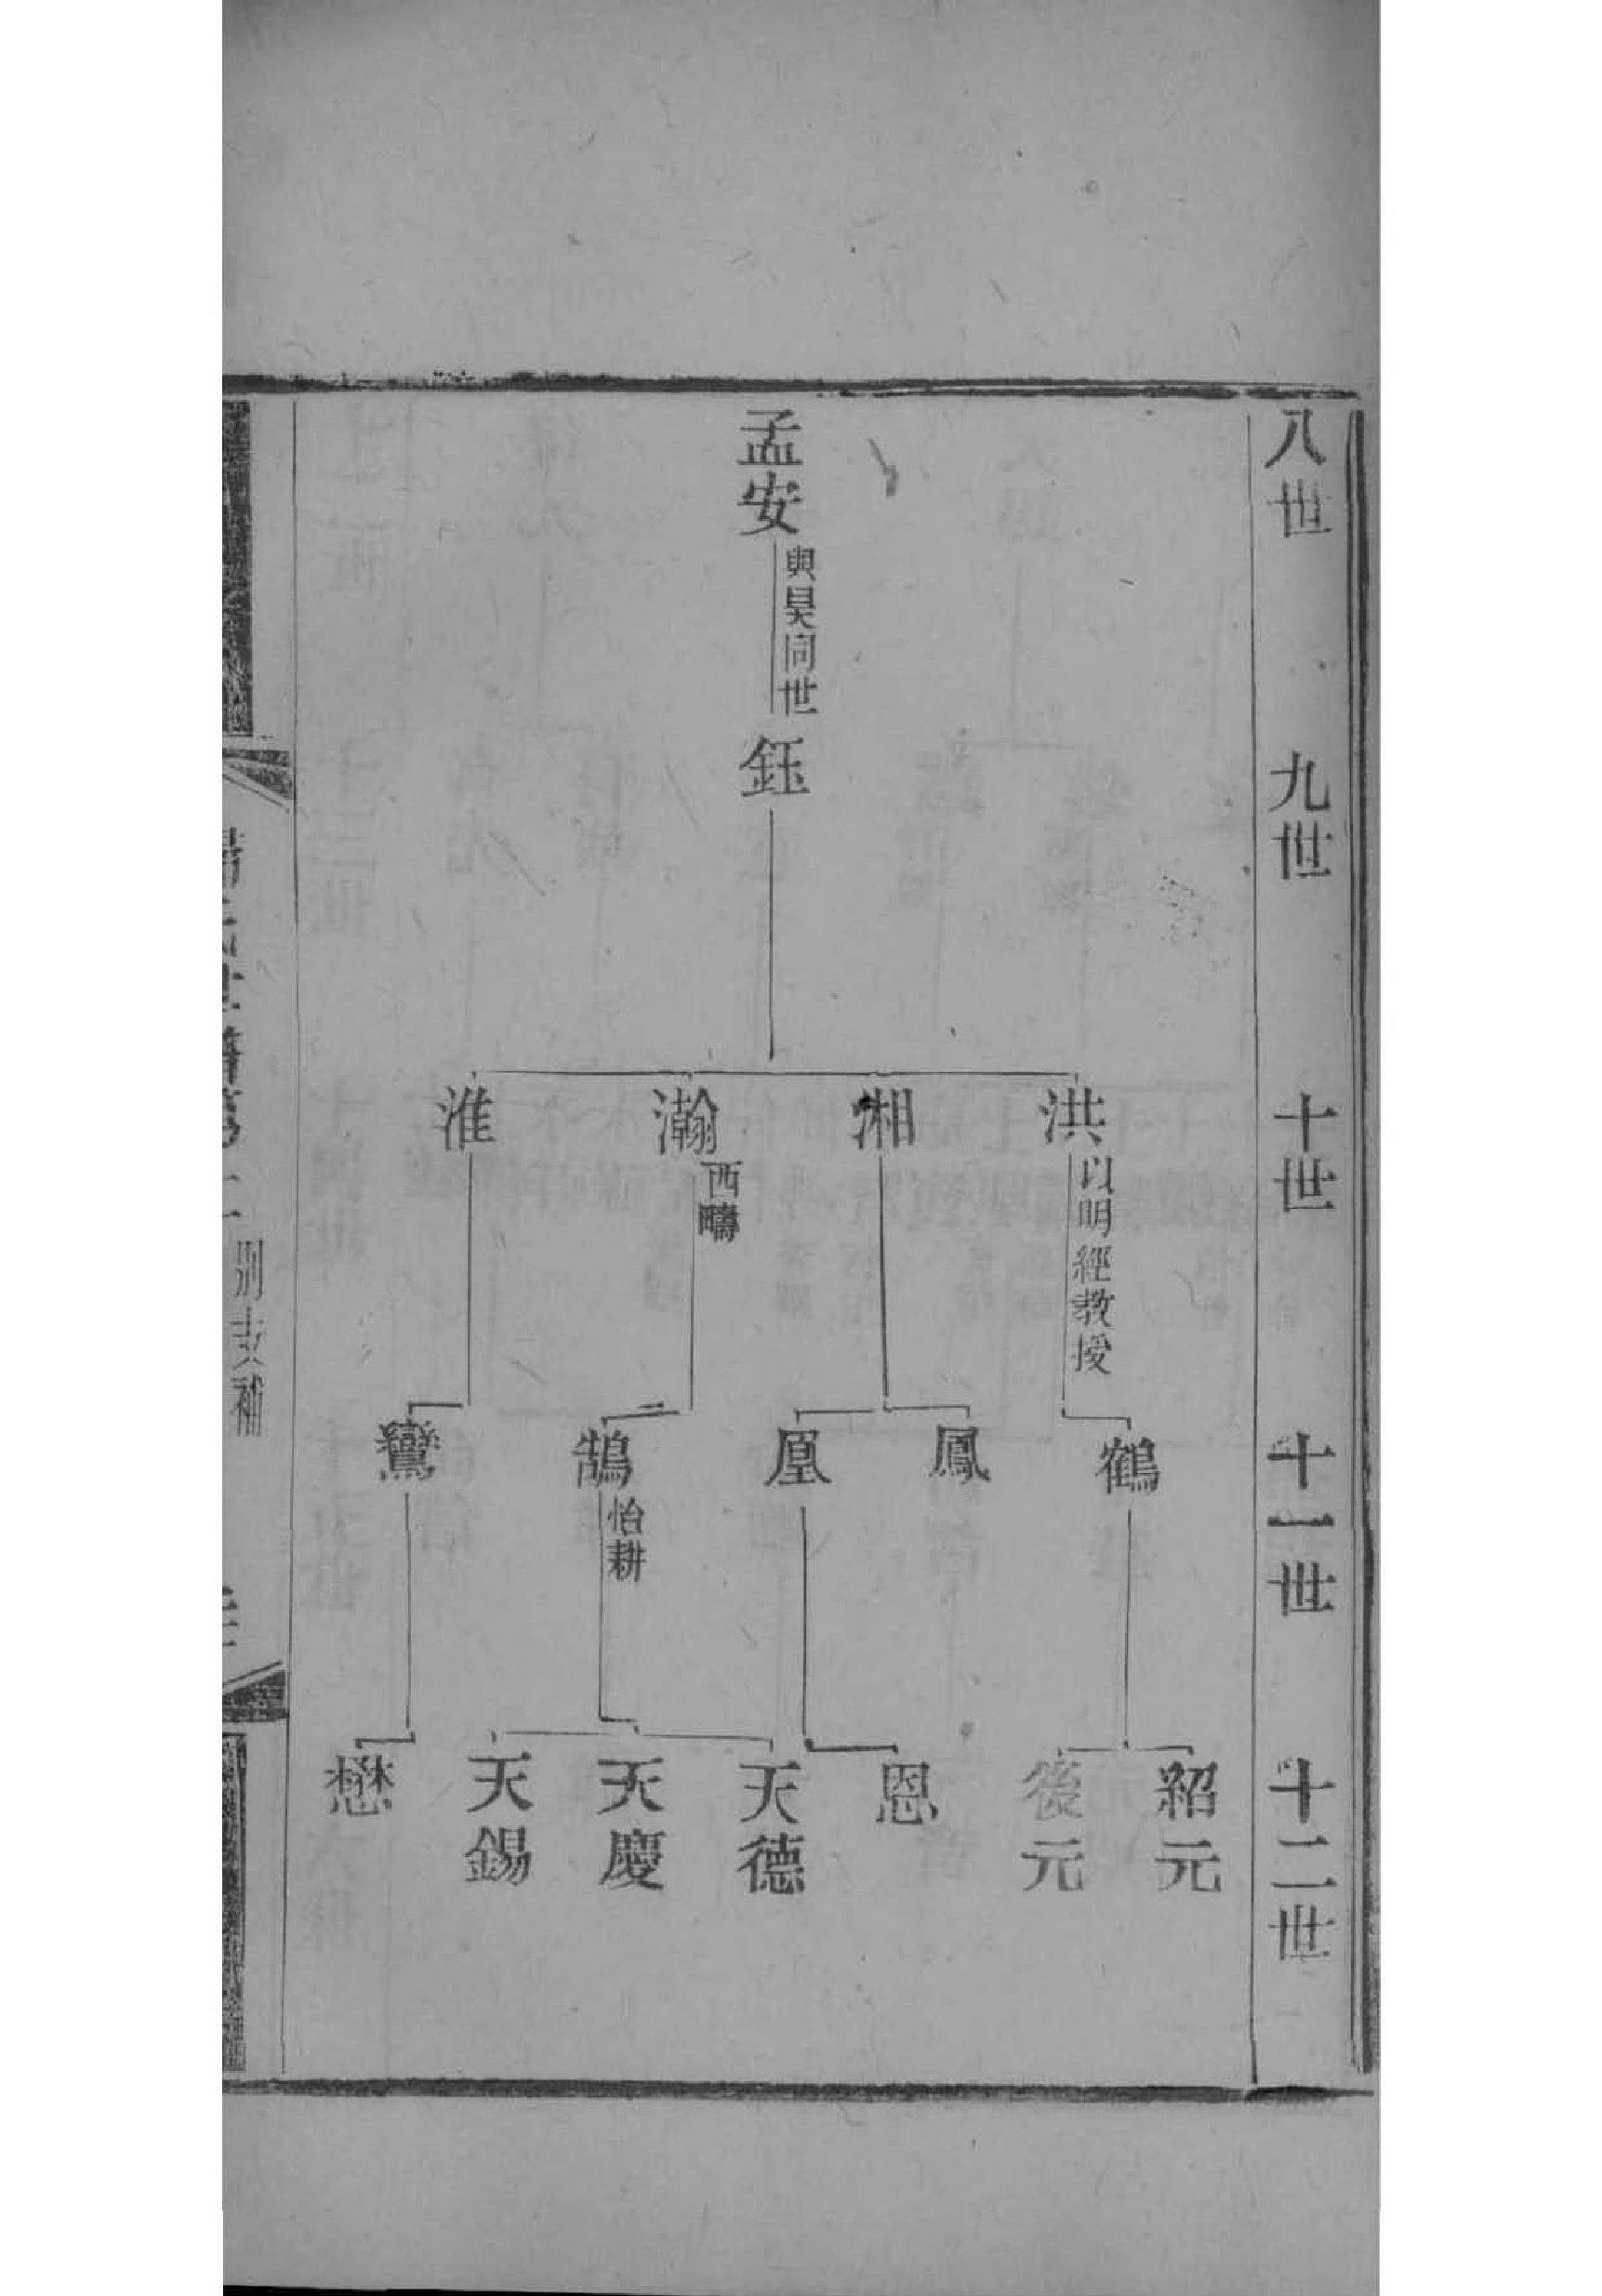 八世
九世
十世
十一世
十二世
孟安
與昊同世
鈺
洪
以明經教授
湘
瀚
西疇
淮
鶴
鳳
凰
鵠
怡耕
鸞
紹元
後元
恩
天德
天慶
天錫
懋
別支補